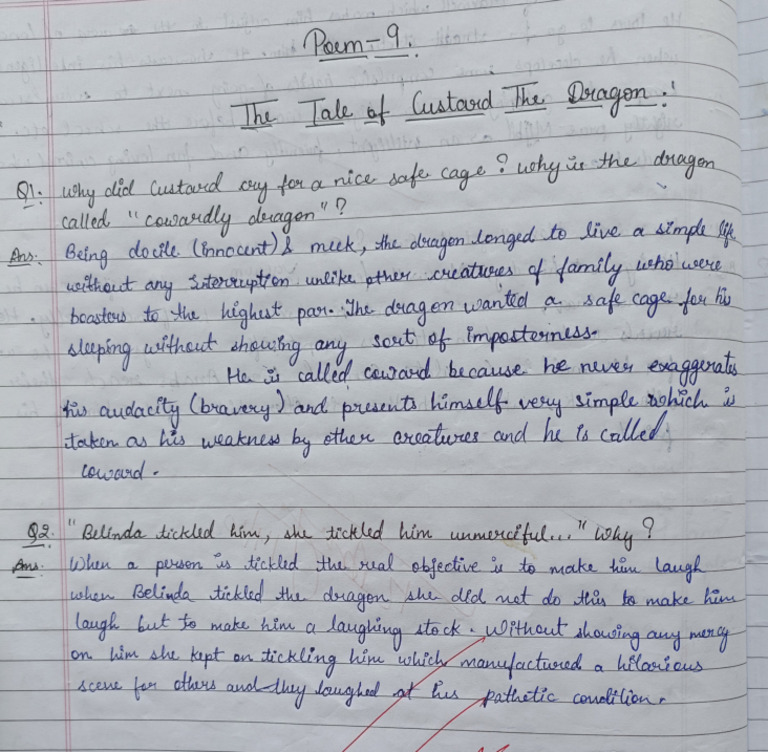 Poem-9.
The Tale of Custard The Dragon:
Q1: Why did Custard cry for a nice safe cage? why is the dragon
called "cowardly dragon"?
Ans: Being docile (innocent) & meek, the dragon longed to live a simple life
without any interruption unlike other creatures of family who were
boasters to the highest par. The dragon wanted a safe cage for his
sleeping without showing any sort of imposterness.
He is called coward because he never exaggerates
his audacity (bravery) and presents himself very simple which is
taken as his weakness by other creatures and he is called
coward.
Q2. "Belinda tickled him, she tickled him unmerciful..." Why?
Ans. When a person is tickled the real objective is to make him laugh
when Belinda tickled the dragon she did not do this to make him
laugh but to make him a laughing stock. Without showing any mercy
on him she kept on tickling him which manufactured a hilarious
scene for others and they laughed at his pathetic condition.